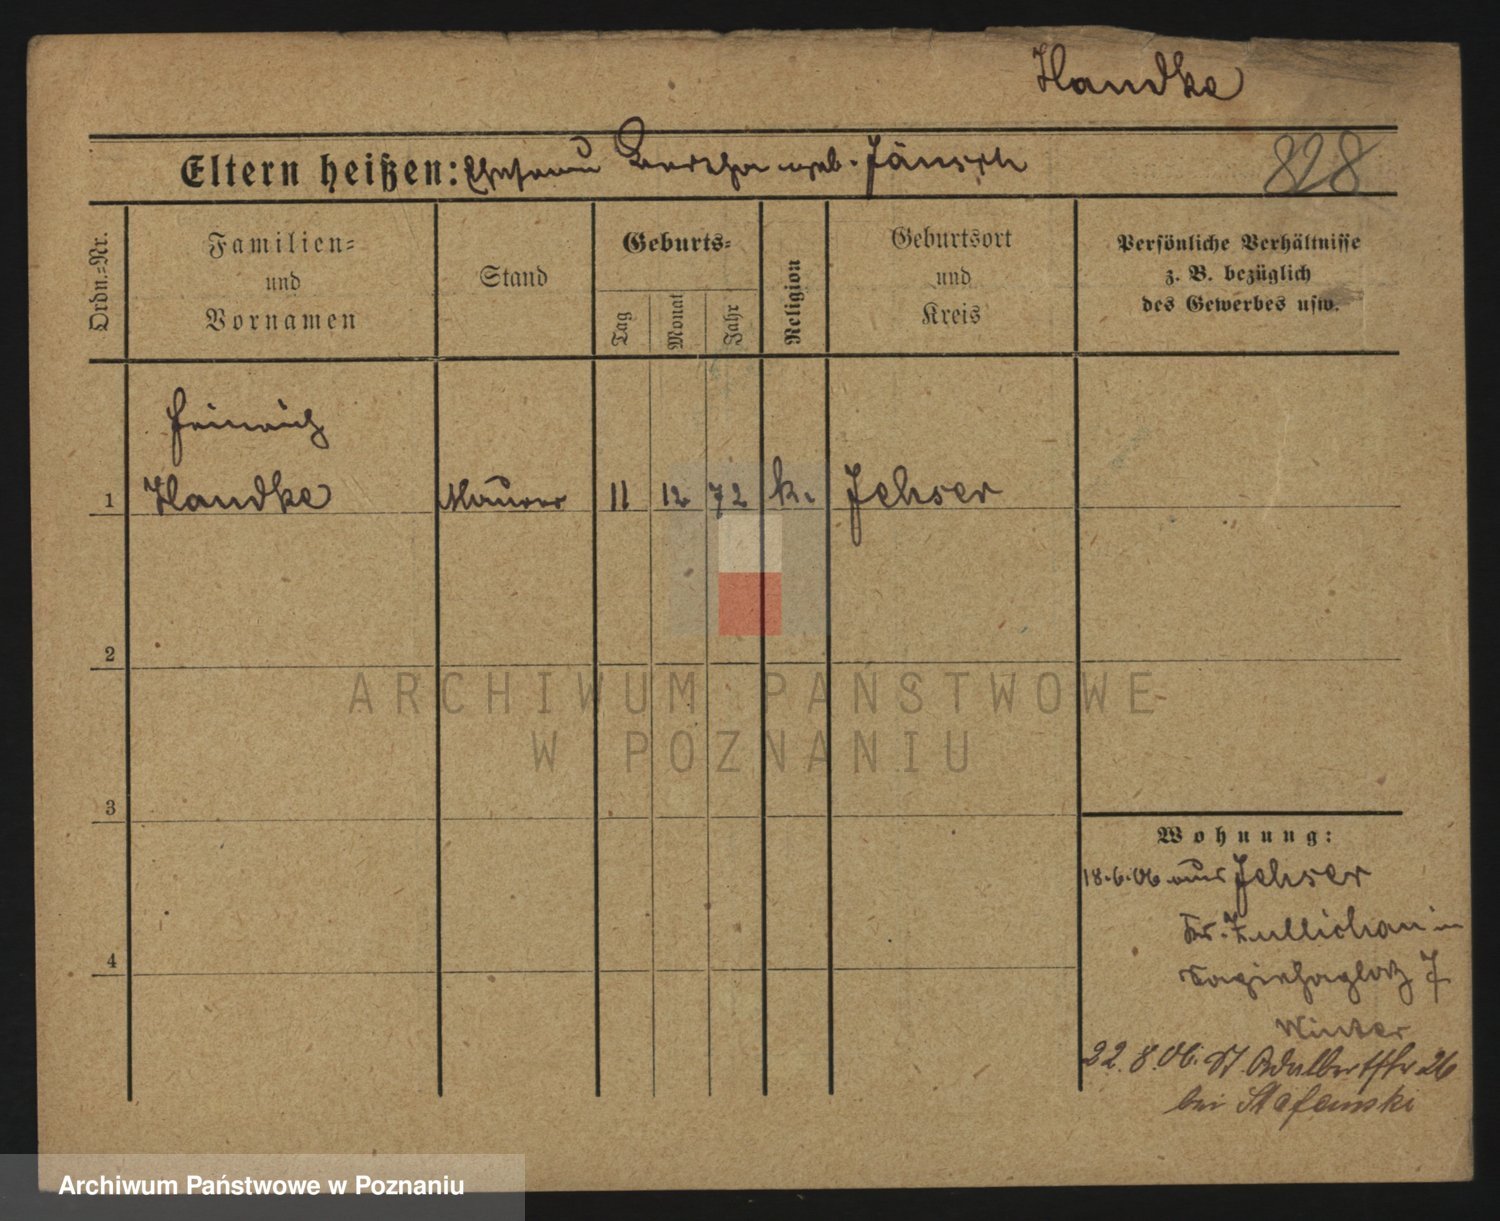 Handke
Eltern heißen: Ehefrau Bertha geb. Jänsch
828
Ordn.=Nr.
Familien=
und
Vornamen
Stand
Geburts=
Tag
Monat
Jahr
Religion
Geburtsort
und
Kreis
Persönliche Verhältnisse
z. B. bezüglich
des Gewerbes usw.
Heinrich
1 Handke Maurer 11 12 72 k. Jehser
2
3
4
Wohnung:
18.6.06 aus Jehser
Kr. Züllichau in
7
Winter
22.8.06. St Adalbertstr 26
bei Stefanski
ARCHIWUM PAŃSTWOWE
W POZNANIU
Archiwum Państwowe w Poznaniu